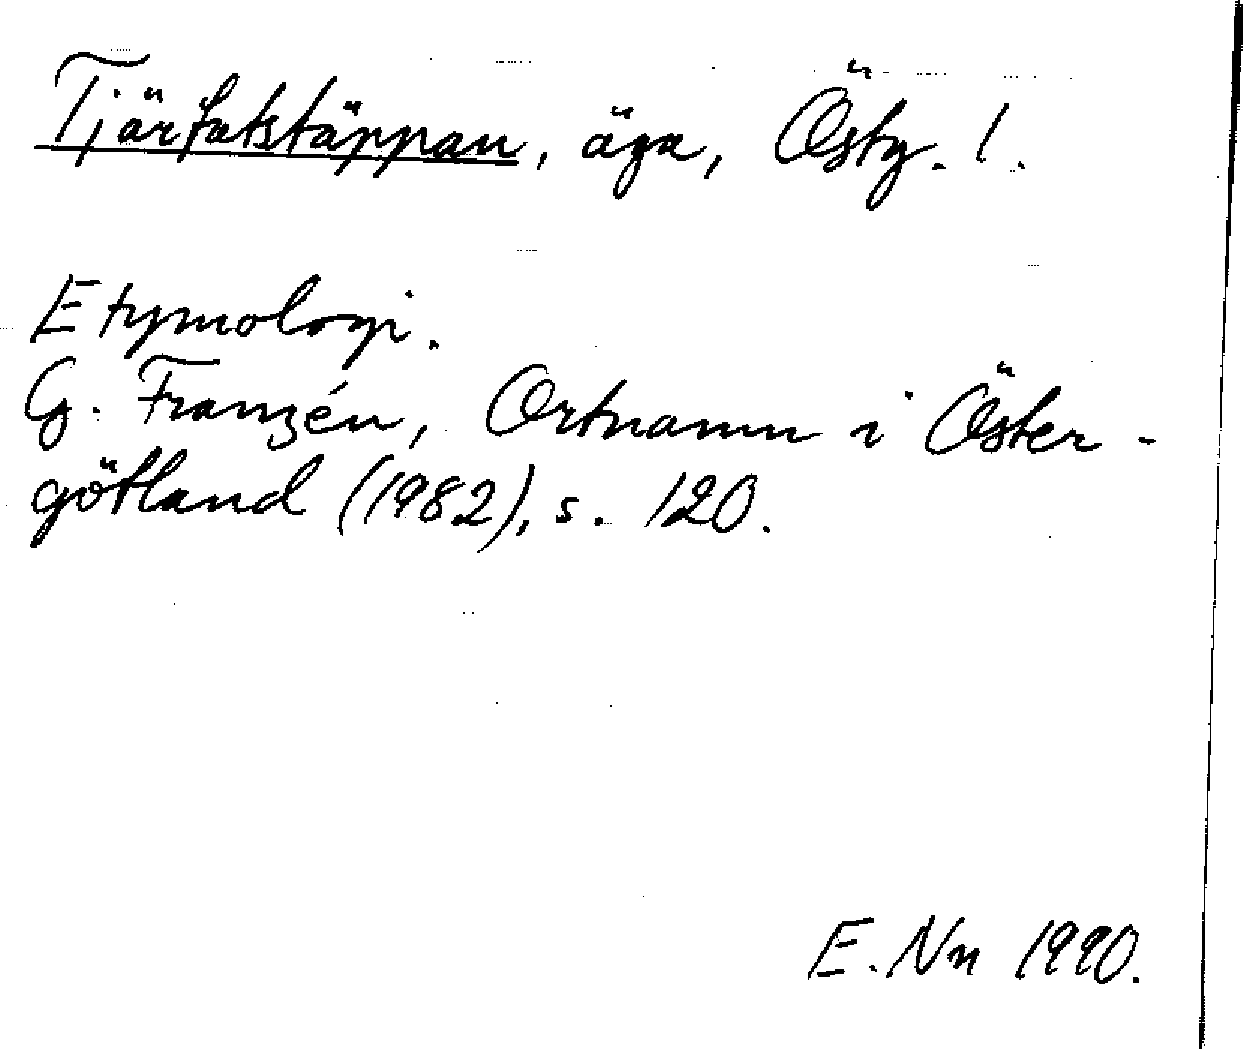 Tjärfatstäppan, äga, Östg. l.
Etymologi.
G. Franzén, Ortnamn i Öster-
götland (1982), s. 120.
E. Nn 1990.